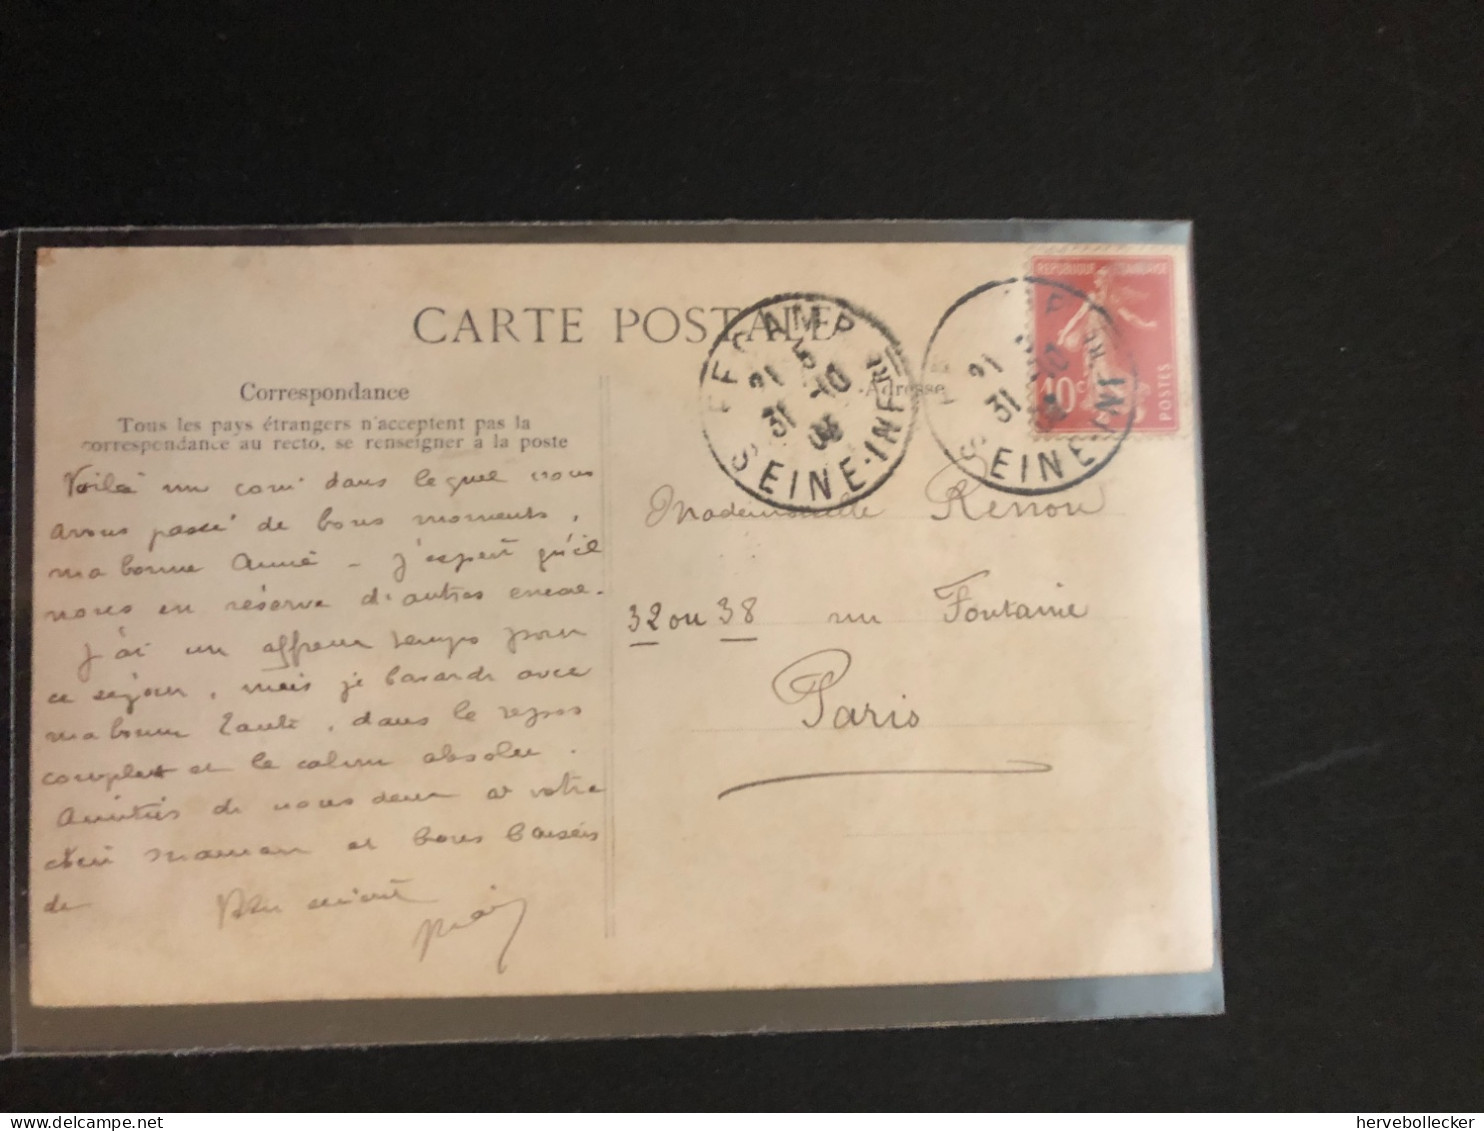 CARTE POSTALE
Correspondance
Tous les pays étrangers n'acceptent pas la
correspondance au recto, se renseigner à la poste
Adresse
Voilà un coin dans lequel nous
avons passé de bons moments,
ma bonne Année - J'espère qu'il
nous en réserve d'autres encore.
J'ai un affreux temps pour
ce séjour, mais je basarde avec
ma bonne Tante, dans le repos
complet et le calme absolu.
Amitiés de nous deux à votre
chère maman et bons baisers
de
Mademoiselle Renou
32 ou 38 rue Fontaine
Paris
FECAMP
21 5
31 -10
08
SEINE-INFRE
REPUBLIQUE FRANÇAISE
10c
POSTES
P
21
31 10
SEINE INFRE
hervebollecker